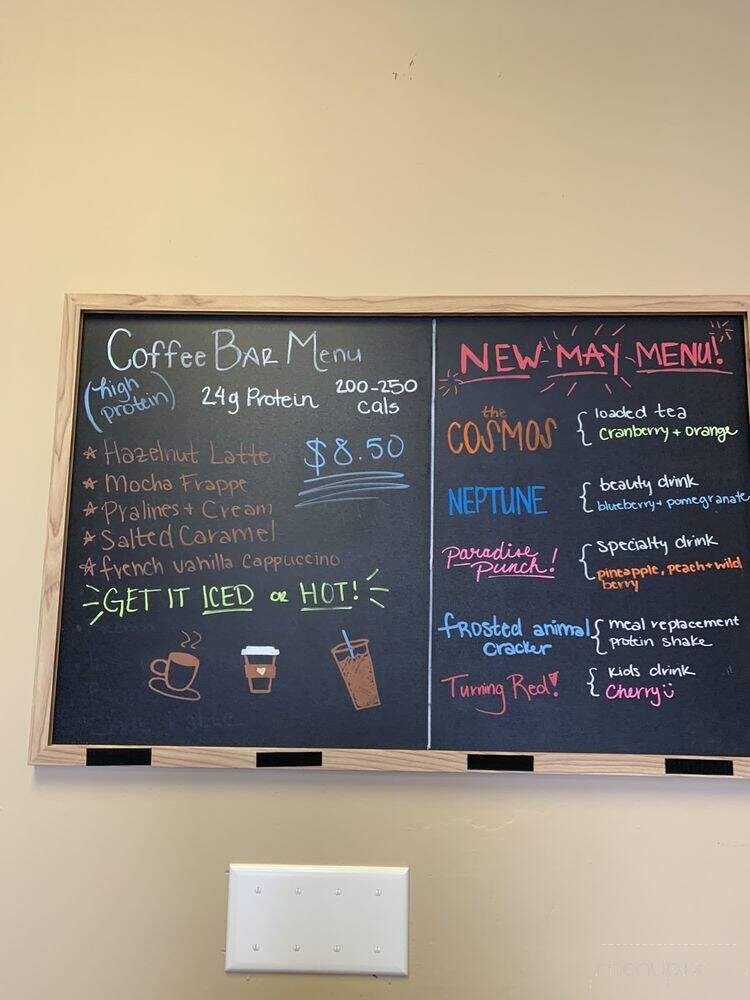 Coffee Bar Menu
(high protein)
24g Protein
200-250 cals
☆ Hazelnut Latte
☆ Mocha Frappe
☆ Pralines + Cream
☆ Salted Caramel
☆ french vanilla Cappuccino
$8.50
GET IT ICED or HOT!
NEW MAY MENU!
the
COSMOS
loaded tea
Cranberry + orange
NEPTUNE
beauty drink
blueberry + pomegranate
Paradise
Punch!
Specialty drink
pineapple, peach + wild
berry
frosted animal
cracker
meal replacement
protein shake
Turning Red!
kids drink
Cherry